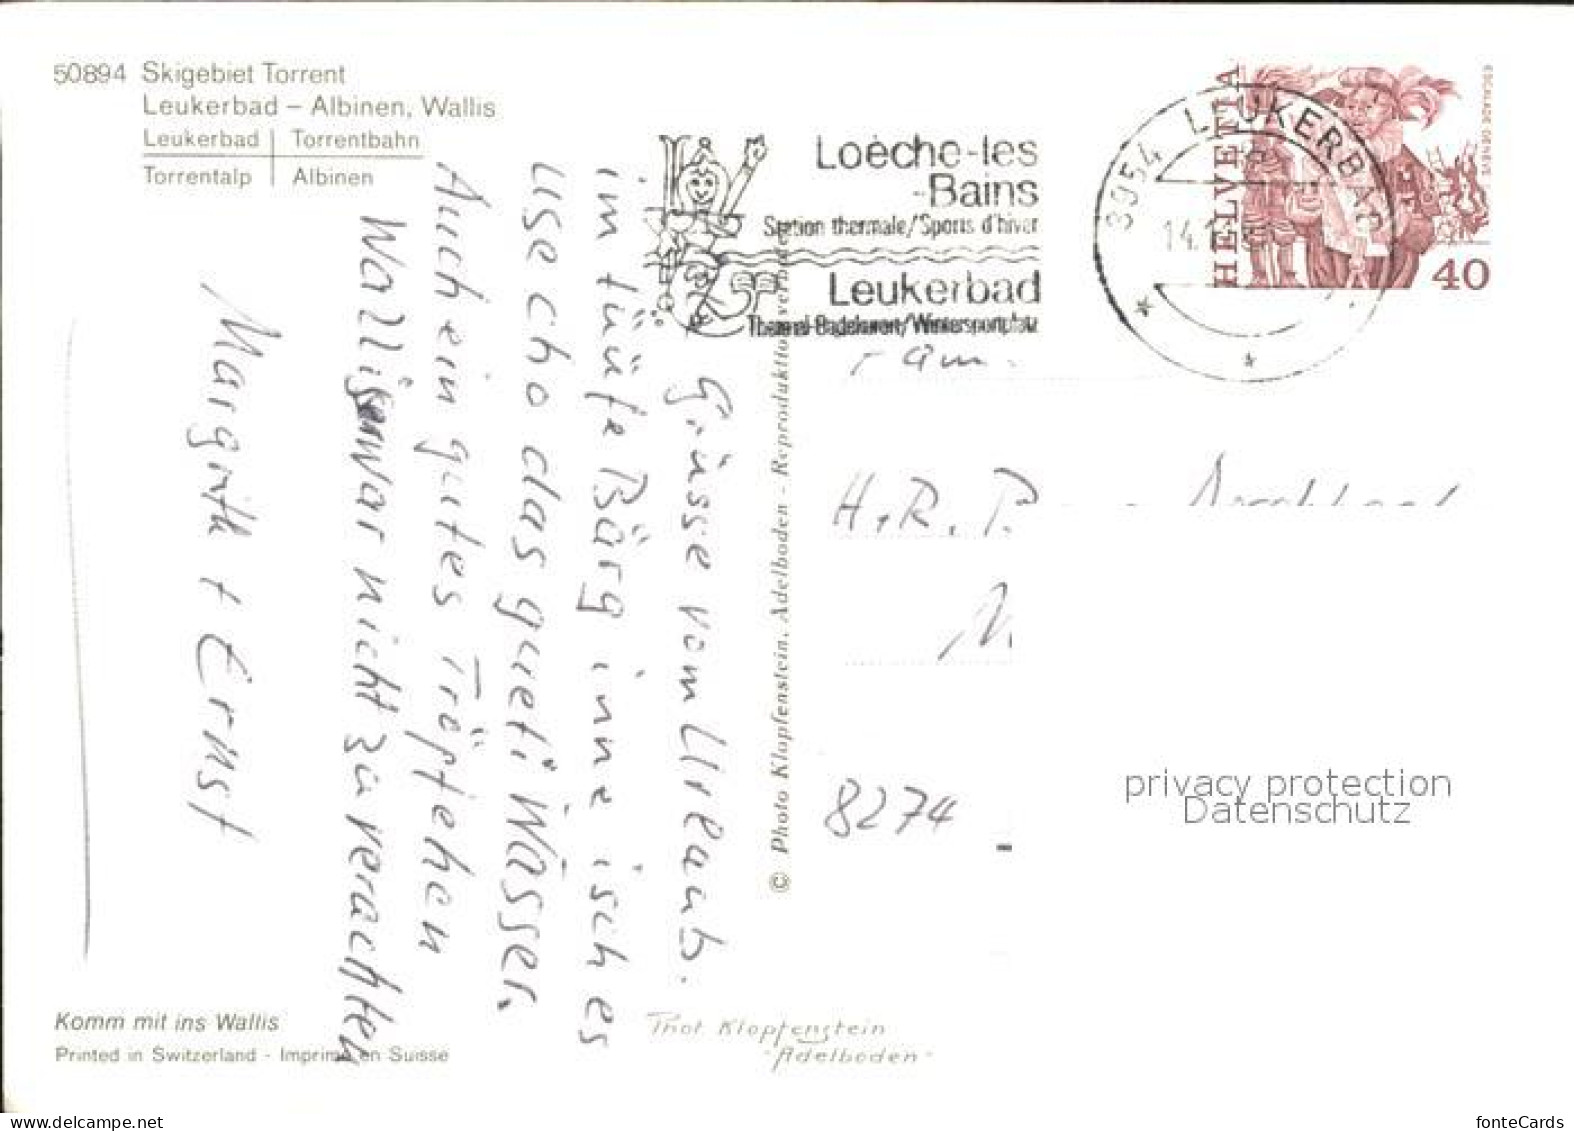 50894 Skigebiet Torrent
Leukerbad – Albinen, Wallis
Leukerbad | Torrentbahn
Torrentalp | Albinen
Loèche-les
-Bains
Station thermale/Sports d'hiver
Leukerbad
Thermal-Badekurort/Wintersportplatz
3954 LEUKERBAD
14.
HELVETIA
ESCALADE GENÈVE
40
Grüsse vom Urlaub.
im tüüfe Bärg inne isch es
use cho das gueti Wasser.
Auch ein gutes Tröpfchen
Walliser war nicht zu verachten
Margrith + Ernst
© Photo Klopfenstein, Adelboden - Reproduktion verboten
Fam.
H. R. P
8274
privacy protection
Datenschutz
Komm mit ins Wallis
Printed in Switzerland - Imprimé en Suisse
Phot Klopfenstein
"Adelboden"
www.delcampe.net
fonteCards